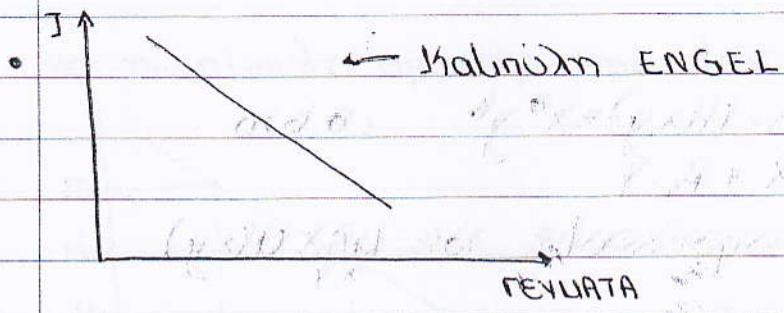 I
← Καμπύλη ENGEL
ΓΕΥΜΑΤΑ